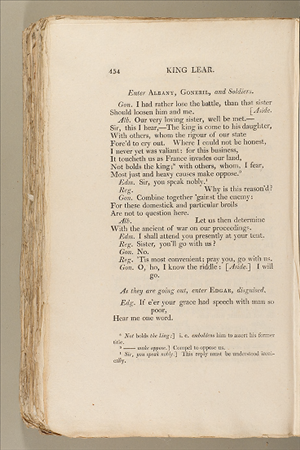 454 KING LEAR.
Enter ALBANY, GONERIL, and Soldiers.
Gon. I had rather lose the battle, than that sister
Should loosen him and me. [Aside.
Alb. Our very loving sister, well be met.—
Sir, this I hear,—The king is come to his daughter,
With others, whom the rigour of our state
Forc'd to cry out. Where I could not be honest,
I never yet was valiant: for this business,
It toucheth us as France invades our land,
Not holds the king; with others, whom, I fear,
Most just and heavy causes make oppose.
Edm. Sir, you speak nobly.
Reg. Why is this reason'd?
Gon. Combine together 'gainst the enemy:
For these domestick and particular broils
Are not to question here.
Alb. Let us then determine
With the ancient of war on our proceedings.
Edm. I shall attend you presently at your tent.
Reg. Sister, you'll go with us?
Gon. No.
Reg. 'Tis most convenient; pray you, go with us.
Gon. O, ho, I know the riddle: [Aside.] I will
go.
As they are going out, enter EDGAR, disguised.
Edg. If e'er your grace had speech with man so
poor,
Hear me one word.
Not holds the king:] i. e. emboldens him to assert his former
title.
—— make oppose.] Compel to oppose us.
Sir, you speak nobly.] This reply must be understood ironi-
cally.